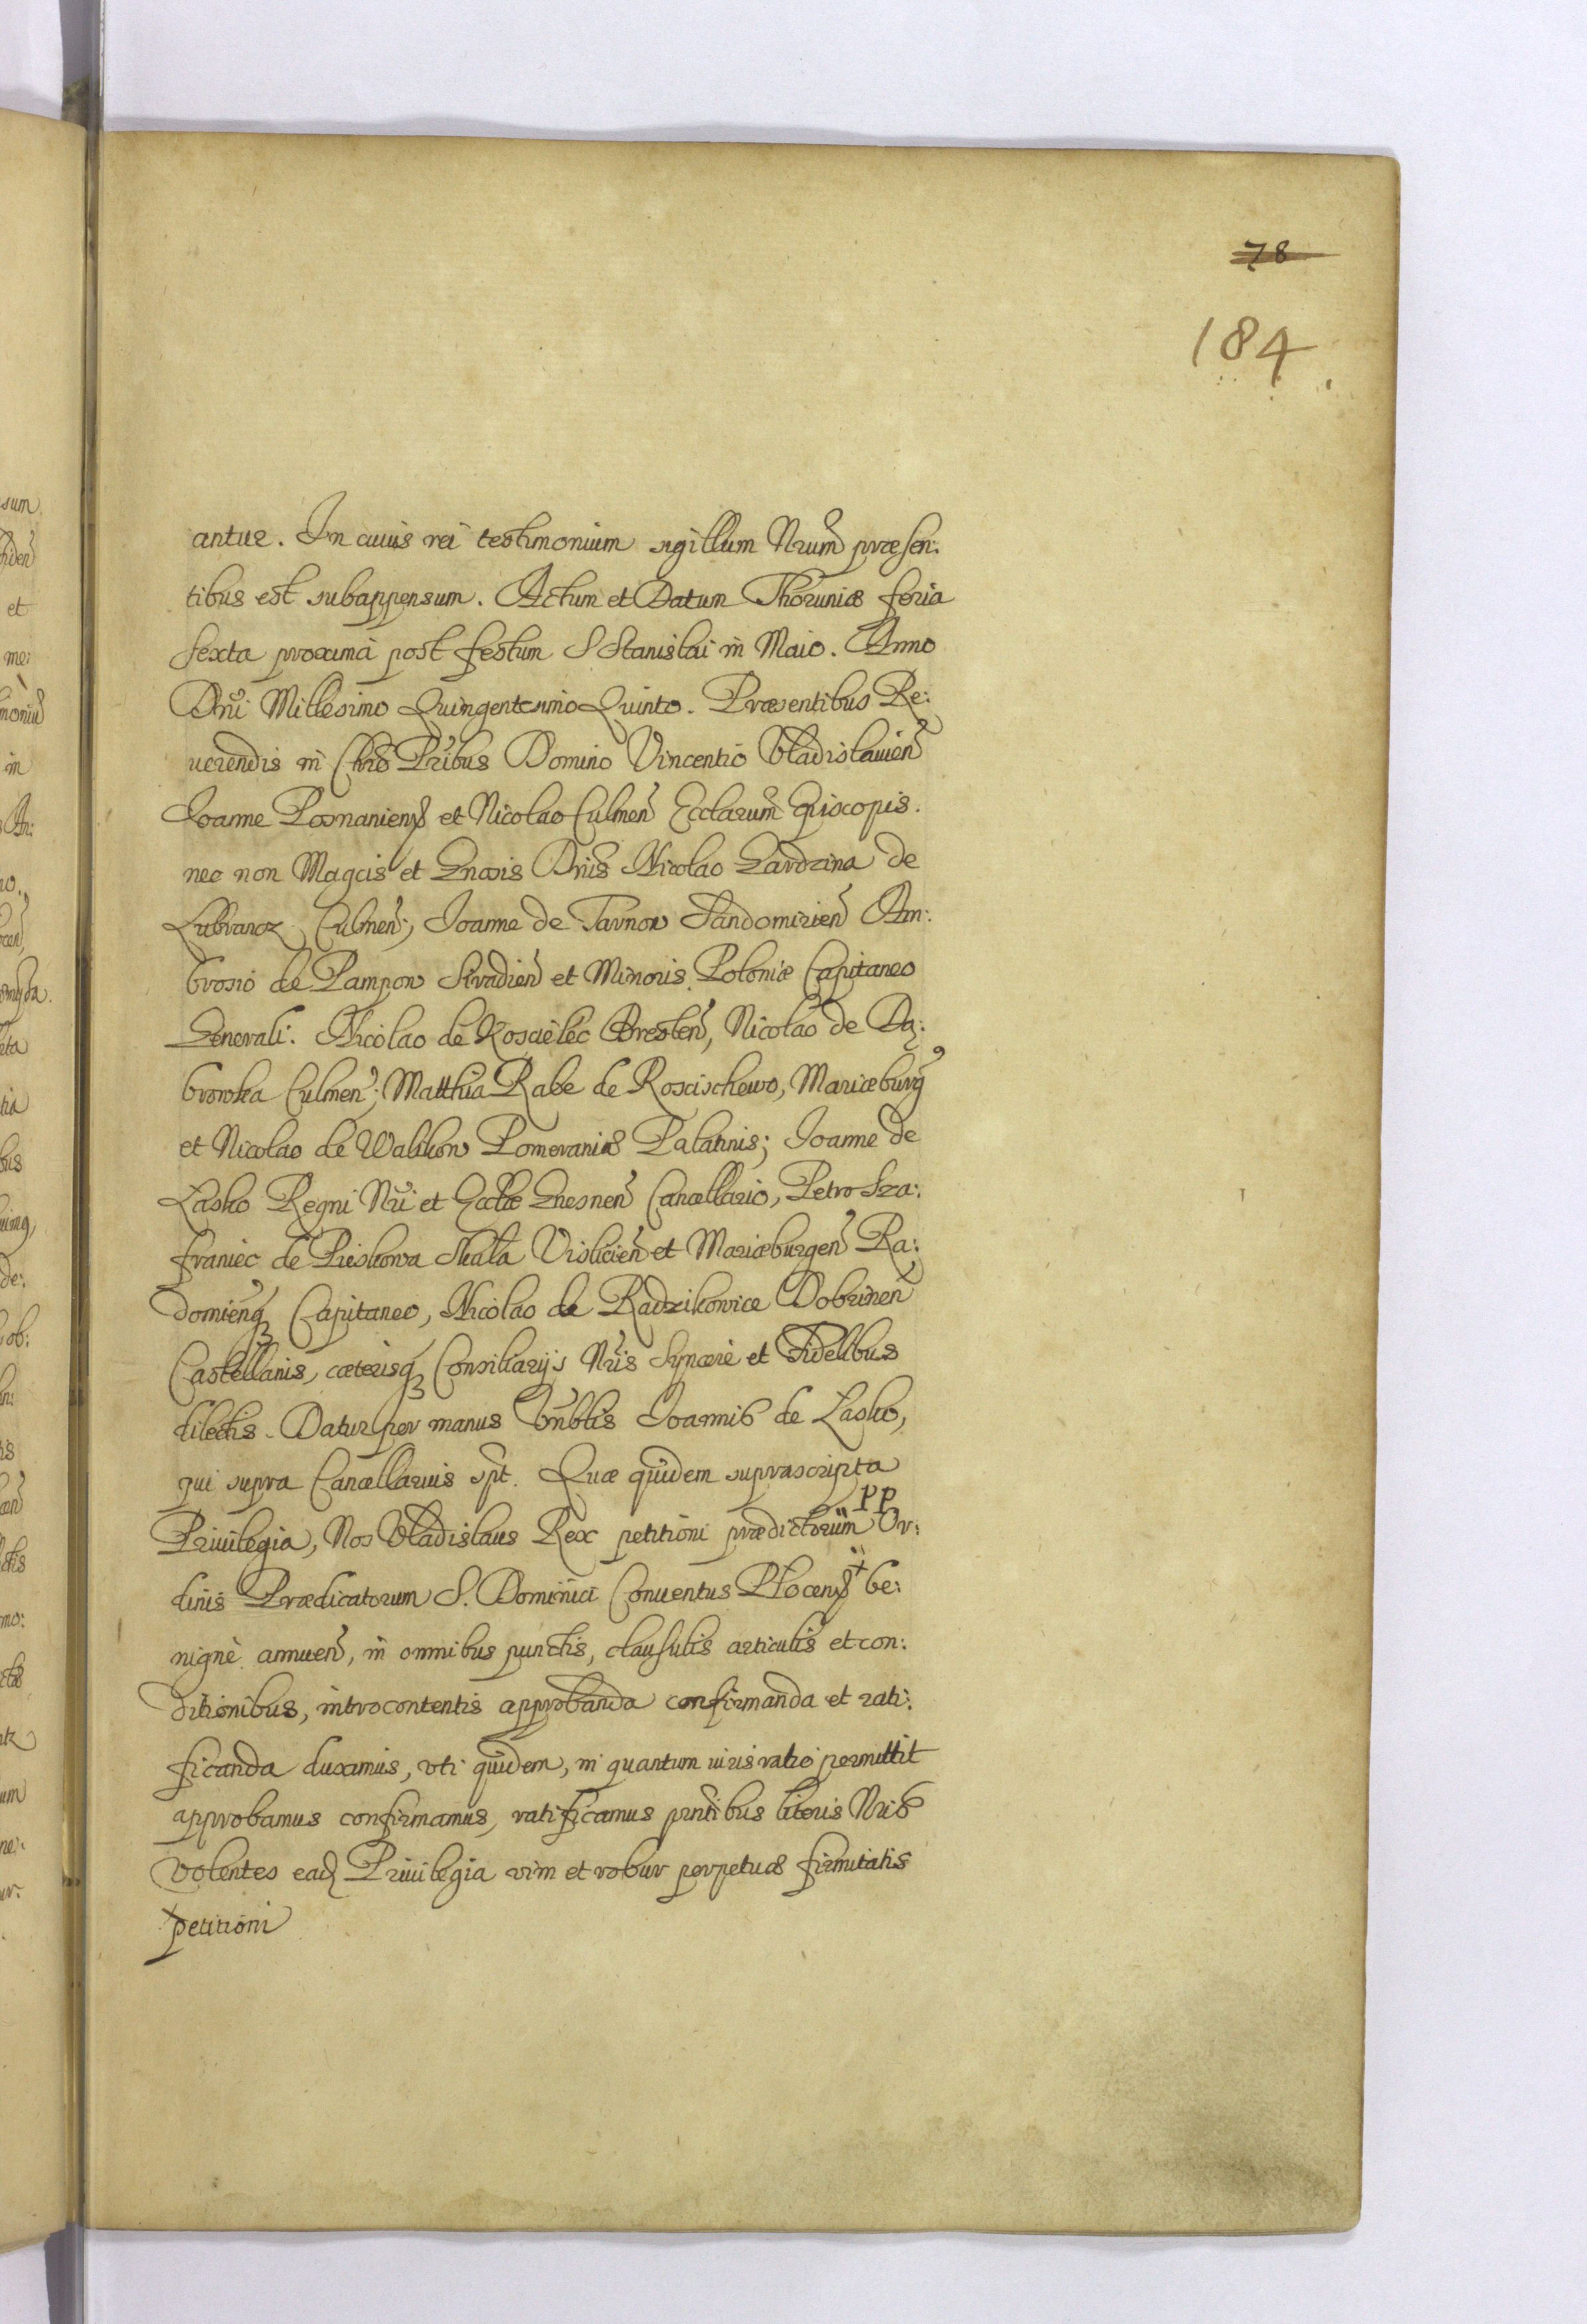 78
184
antur. In cuius rei testimonium sigillum Nrum præsen:
tibus est subappensum. Actum et Datum Thoruniæ feria
sexta proxima post festum S Stanislai in Maio. Anno
Dni Millesimo Quingentesimo Quinto. Præsentibus Re:
uerendis in Chro Pribus Domino Vincentio Vladislauien
Joanne Posnaniens et Nicolao Culmen Ecclarum Episcopis.
nec non Magcis et Gnosis Dnis Nicolao Gardzina de
Lubrancz Culmen; Joanne de Tarnow Sandomirien Am:
brosio de Pampow Siradien et Minoris Poloniæ Capitaneo
Generali. Nicolao de Koscielec Bresten, Nicolao de Dą:
browka Culmen; Matthia Rabe de Roscischewo, Mariæburg
et Nicolao de Walikow Pomeraniæ Palatinis; Joanne de
Lasko Regni Nri et Ecclæ Gnesnen Cancellario, Petro Sza:
franiec de Pieskowa Skała Vislicien et Mariæburgen Ra:
domienq Capitaneo, Nicolao de Radzikowice Dobrinen
Castellanis, cæterisq Consiliarijs Nris Syncerè et Fidelibus
dilectis. Datur per manus Vnblis Joannis de Lasko,
qui supra Cancellarius spt. Quæ quidem suprascripta
pp
Priuilegia, Nos Vladislaus Rex petitioni prædictorum Or:
dinis Prædicatorum S. Dominici Conuentus Plocens + be:
nignè annuen, in omnibus punctis, clausulis articulis et con:
ditionibus, introcontentis approbanda confirmanda et rati:
ficanda duximus, vti quidem, in quantum iuris ratio permittit
approbamus confirmamus, ratificamus pntibus literis Nris
volentes eadq Priuilegia vim et robur perpetuæ firmitatis
+ petitioni